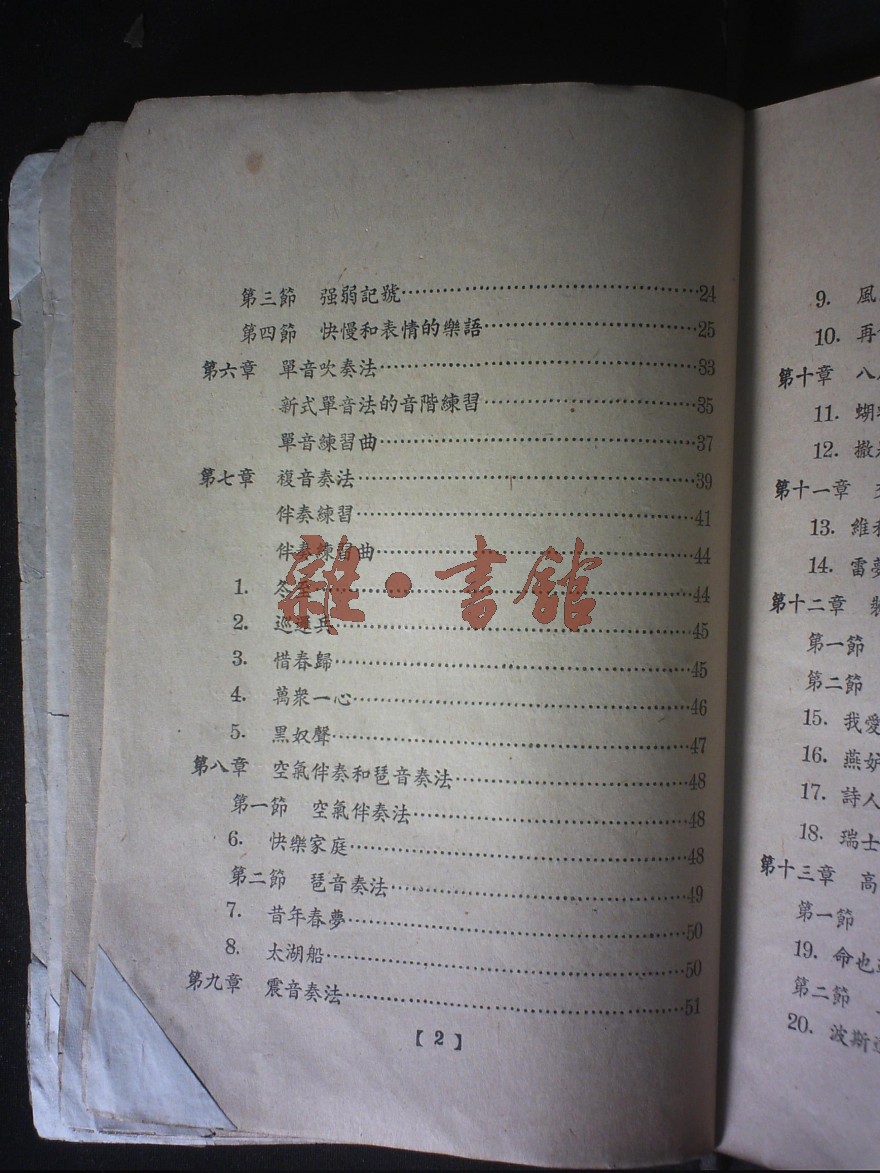 第三節 强弱記號…………24
第四節 快慢和表情的樂語…………25
第六章 單音吹奏法…………33
新式單音法的音階練習…………35
單音練習曲…………37
第七章 複音奏法…………39
伴奏練習…………41
伴奏練習曲…………44
1. 冬至…………44
2. 巡邏兵…………45
3. 惜春歸…………45
4. 萬衆一心…………46
5. 黑奴聲…………47
第八章 空氣伴奏和琶音奏法…………48
第一節 空氣伴奏法…………48
6. 快樂家庭…………48
第二節 琶音奏法…………49
7. 昔年春夢…………50
8. 太湖船…………50
第九章 震音奏法…………51
【2】
雜·書館
9. 風
10. 再
第十章 八
11. 蝴
12. 撤
第十一章
13. 維
14. 雷夢
第十二章
第一節
第二節
15. 我愛
16. 燕
17. 詩人
18. 瑞士
第十三章 高
第一節
19. 命也
第二節
20. 波斯